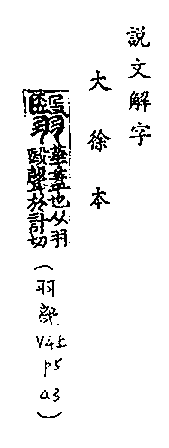 說文解字
大徐本
翳
華蓋也从羽
殹聲於計切
(羽部
V4上
P5
a3)